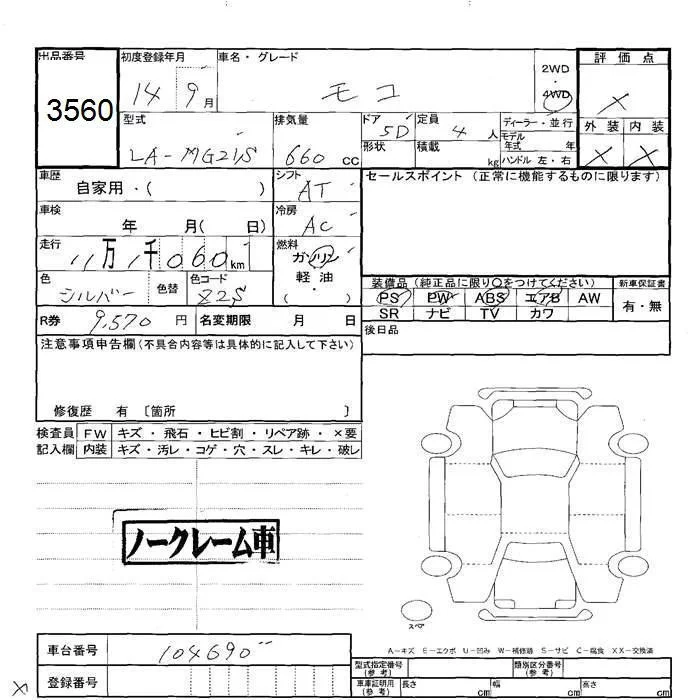 出品番号 初度登録年月 車名・グレード 2WD・4WD 評価点
3560 14 9月 モコ
型式 排気量 ドア 5D 定員 ディーラー・並行 外装 内装
LA-MG21S 660 cc 形状 4人 モデル年式 年
積載 kg ハンドル 左・右
車歴 自家用・( ) シフト AT セールスポイント (正常に機能するものに限ります)
車検 年 月( 日) 冷房 AC
走行 11万1千060km 燃料 ガソリン
色 シルバー 色替 色コード Z2S 軽油・( ) 装備品 (純正品に限り○をつけてください) 新車保証書
PS PW ABS エアB AW 有・無
SR ナビ TV カワ
R券 9,570円 名変期限 月 日 後日品
注意事項申告欄(不具合内容等は具体的に記入して下さい)
修復歴 有 〔箇所 〕
検査員 FW キズ・飛石・ヒビ割・リペア跡・×要
記入欄 内装 キズ・汚レ・コゲ・穴・スレ・キレ・破レ
ノークレーム車
スペア
A-キズ E-エクボ U-凹み W-補修跡 S-サビ C-腐食 XX-交換済
車台番号 104690
型式指定番号(参考) 類別区分番号(参考)
登録番号 車庫証明用(参考) 長さ cm 幅 cm 高さ cm